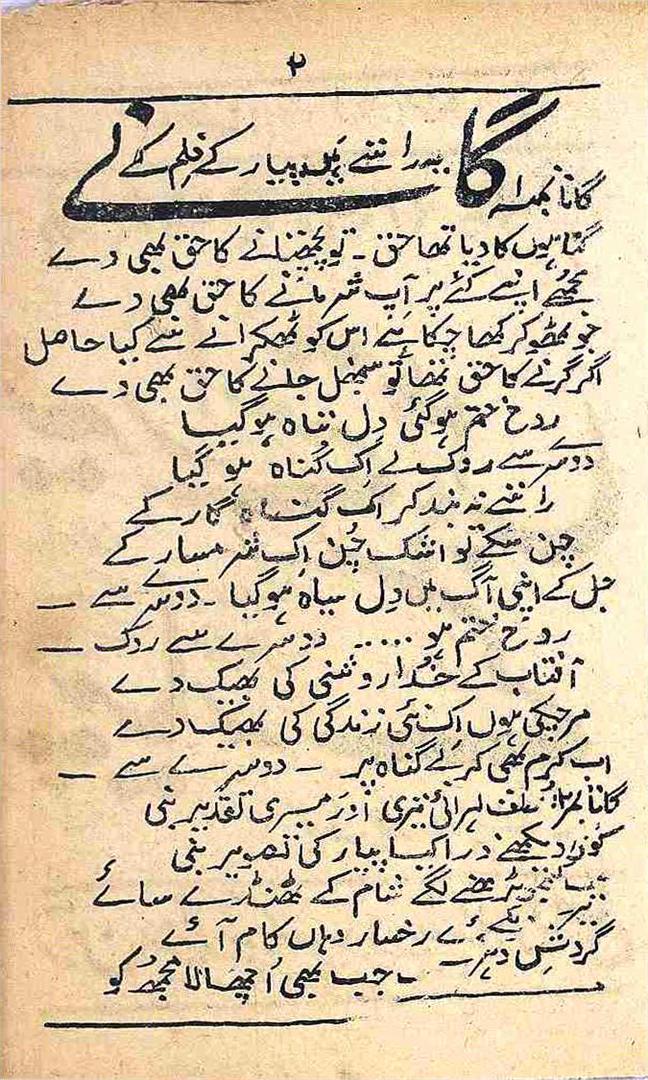 ۲
گانے
یہ راستے ہیں پیار کے فلم کے
گانا نمبر ۱
گناہوں کا دیا تھا حق ۔ تو پچھتانے کا حق بھی دے
مجھے اپنے کئے پر آپ شرمانے کا حق بھی دے
جو ٹھوکر کھا چکا ہے اس کو ٹھکرانے سے کیا حاصل
اگر گرنے کا حق تھا تو سمبھل جانے کا حق بھی دے
روح ختم ہو گئی دل تباہ ہو گیا
دوسرے سے روک لے اک گناہ ہو گیا
راستے نہ بند کر اک گناہ گار کے
چن سکے تو اشک چُن اِک شرمسار کے
جل کے اپنی آگ میں دِل سیاہ ہو گیا ۔ دوسرے سے ــ
روح ختم ہو ..... دوسرے سے روک ــ
آفتاب کے خُدا روشنی کی بھیک دے
مر چکی ہوں اک نئی زندگی کی بھیک دے
اب کرم بھی کر لے گناہ پر ــ دوسرے سے ــ
گانا نمبر ۲ زلف لہرائی تیری اور میری تقدیر بنی
کون دیکھے ذرا کیا پیار کی تصویر بنی
جب لگے شام کے ٹھنڈے سائے
تیرے رخسار وہاں کام آئے
گردشِ دہر ــ جب بھی اُچھالا مجھ کو